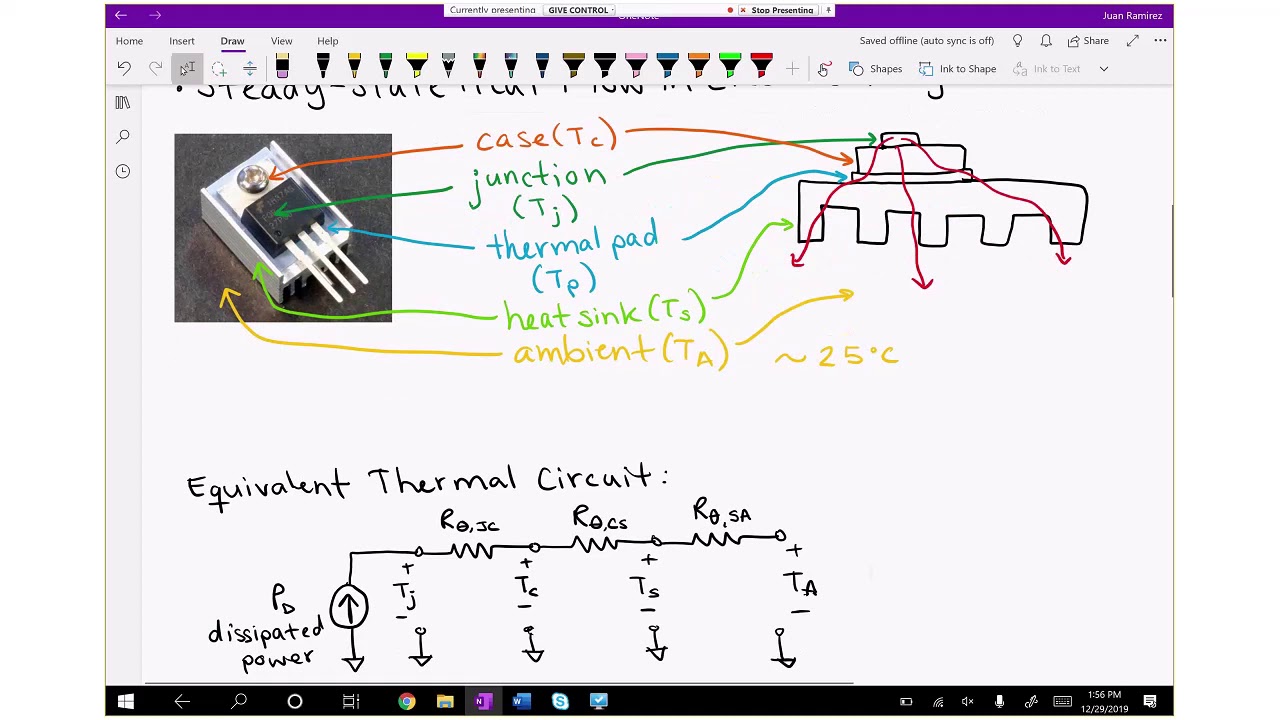 Currently presenting GIVE CONTROL Stop Presenting
OneNote
Juan Ramirez
Home Insert Draw View Help
Saved offline (auto sync is off) Share
Shapes Ink to Shape Ink to Text
• Steady-state Heat Flow in
case (Tc)
junction
(Tj)
thermal pad
(Tp)
heat sink (Ts)
ambient (TA) ~ 25°C
Equivalent Thermal Circuit:
Rθ,JC Rθ,CS Rθ,SA
+ + + +
Tj Tc Ts TA
- - - -
PD
dissipated
power
1:56 PM
12/29/2019